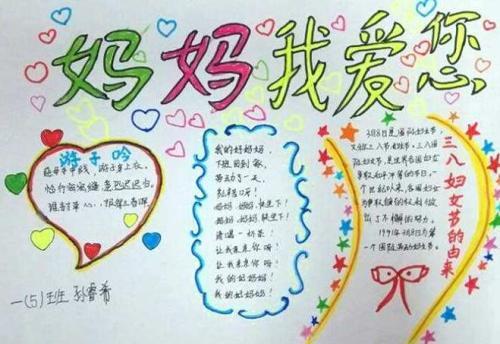 妈妈我爱您
游子吟
慈母手中线，游子身上衣。
临行密密缝，意恐迟迟归。
谁言寸草心，报得三春晖
一(5)班 孙睿希
我的好妈妈，
下班回到家，
劳动了一天，
多么辛苦呀！
妈妈，妈妈，快坐下！
妈妈，妈妈，快坐下！
请喝一杯茶！
让我亲亲你吧！
让我亲亲你吧！
我的好妈妈！
我的好妈妈！
三八妇女节的由来
3月8日是国际妇女节，
又称三八节、妇女节、三八国
际妇女节，是世界各国妇女
争取和平
一个世纪以来，各国妇女
为争取
出了不懈的努力。
1911年3月8日为第
一个国际劳动妇女节。